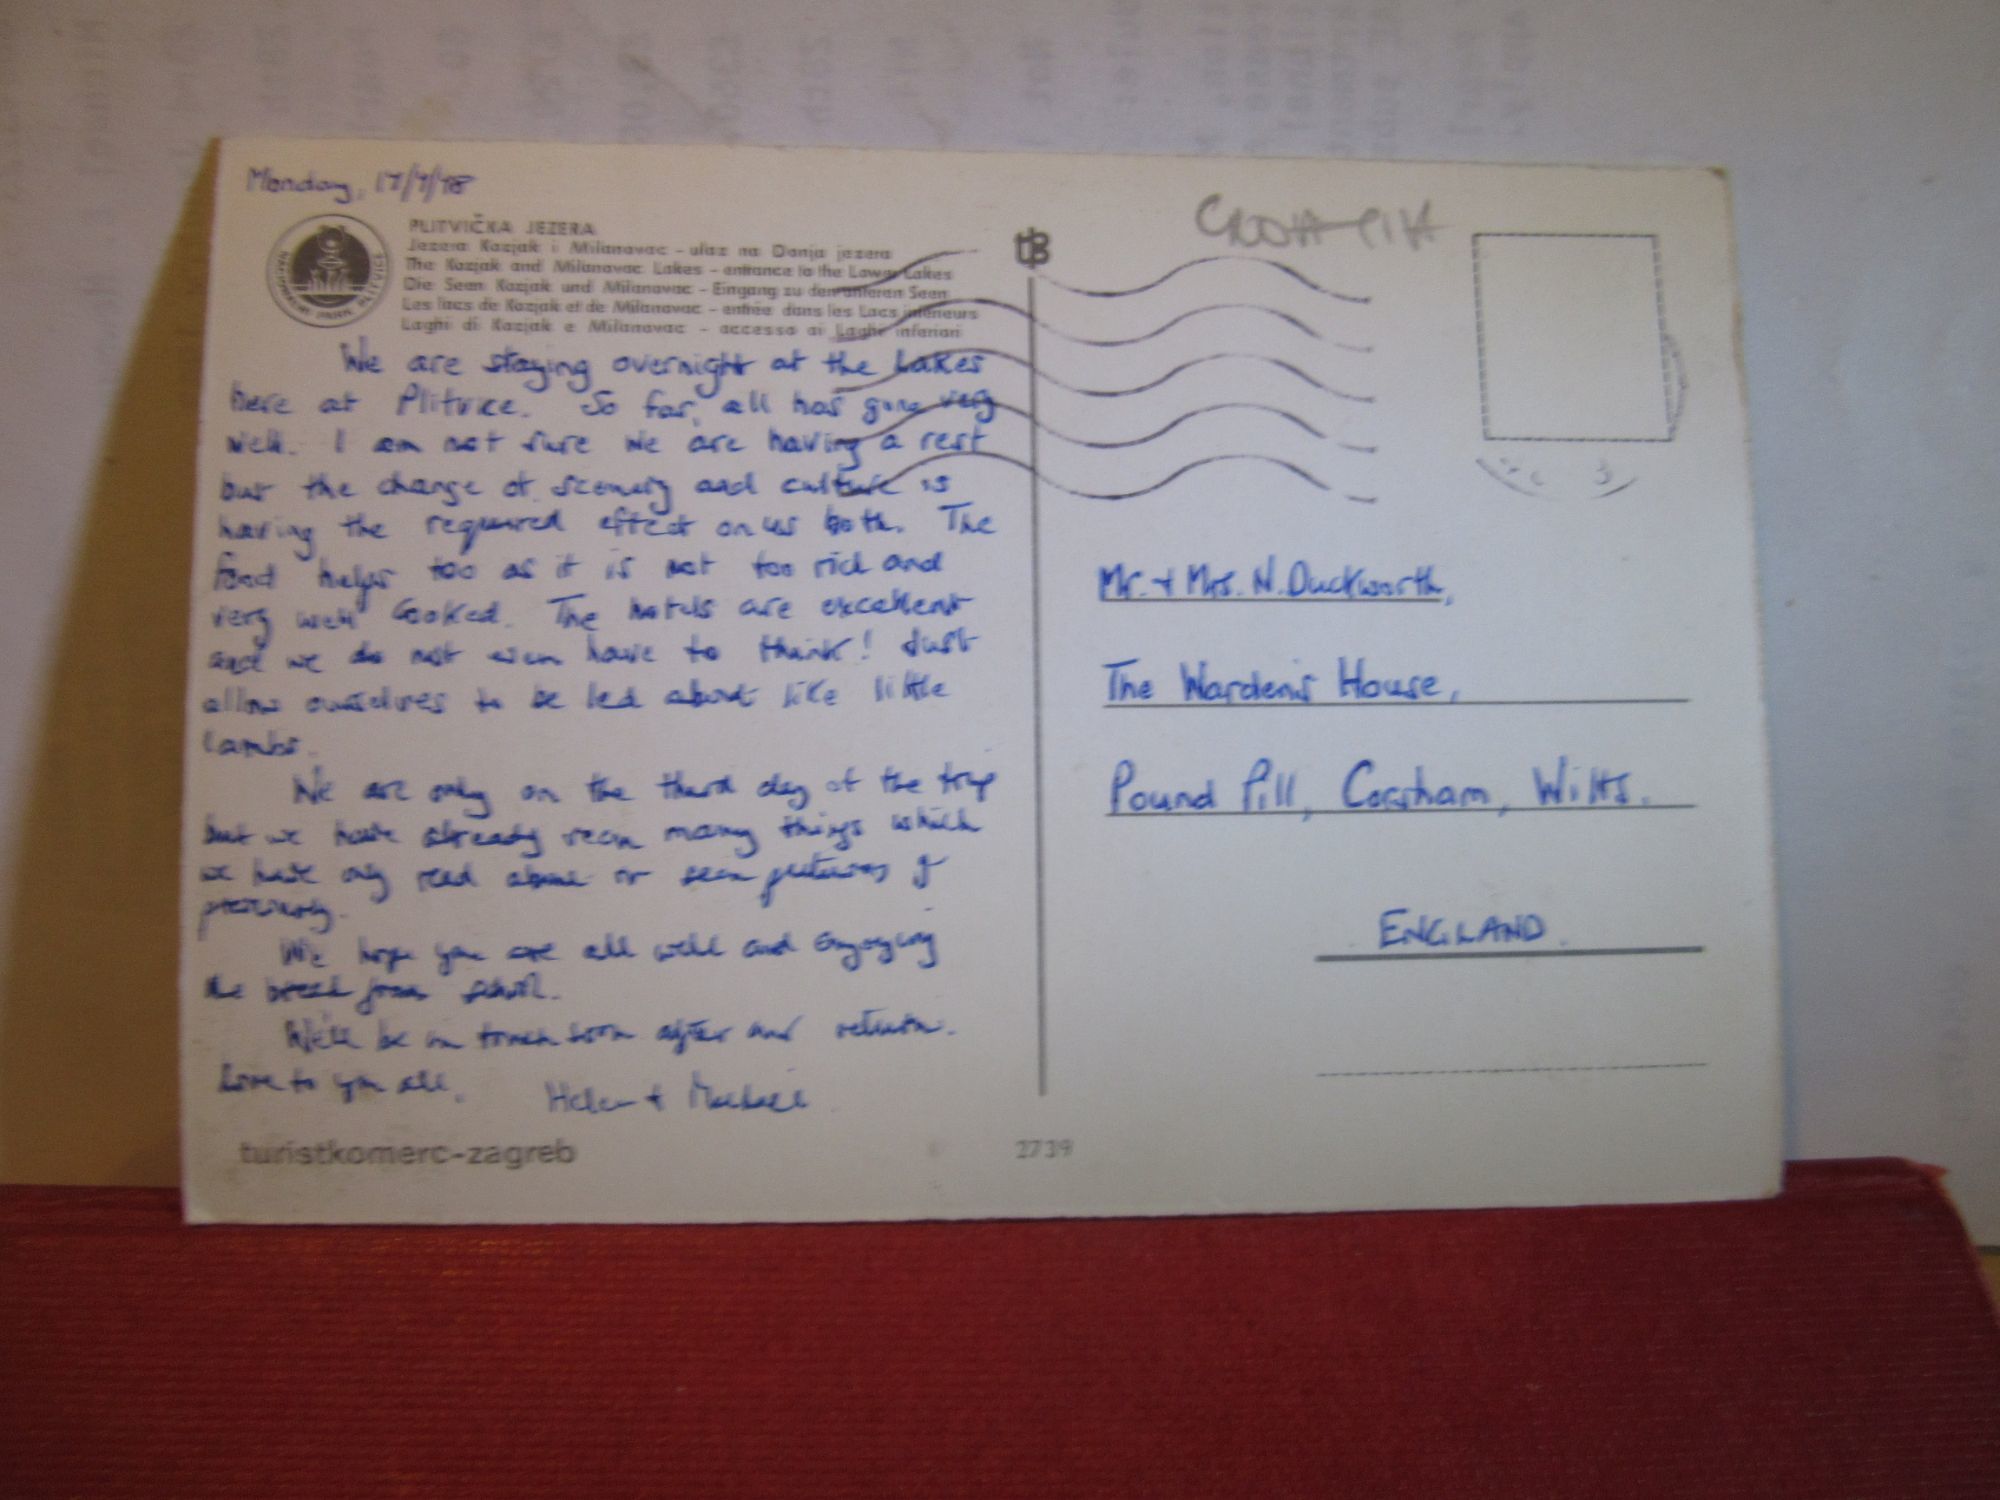 Monday, 17/7/78
PLITVIČKA JEZERA
Jezera Kozjak i Milanovac - ulaz na Donja jezera
The Kozjak and Milanovac Lakes - entrance to the Lower Lakes
Die Seen Kozjak und Milanovac - Eingang zu den unteren Seen
Les lacs de Kozjak et de Milanovac - entrée dans les Lacs inférieurs
Laghi di Kozjak e Milanovac - accesso ai Laghi inferiori
NACIONALNI PARK PLITVICE
We are staying overnight at the Lakes
here at Plitvice. So far, all has gone very
well. I am not sure we are having a rest
but the change of scenery and culture is
having the required effect on us both. The
food helps too as it is not too rich and
very well cooked. The hotels are excellent
and we do not even have to think! Just
allow ourselves to be led about like little
lambs.
We are only on the third day of the trip
but we have already seen many things which
we have only read about or seen pictures of
previously.
We hope you are all well and enjoying
the break from school.
We'll be in touch soon after our return.
Love to you all.
Helen + Michael
turistkomerc-zagreb
2739
CROATIA
Mr. & Mrs. N. Duckworth,
The Warden's House,
Pound Pill, Corsham, Wilts.
ENGLAND.